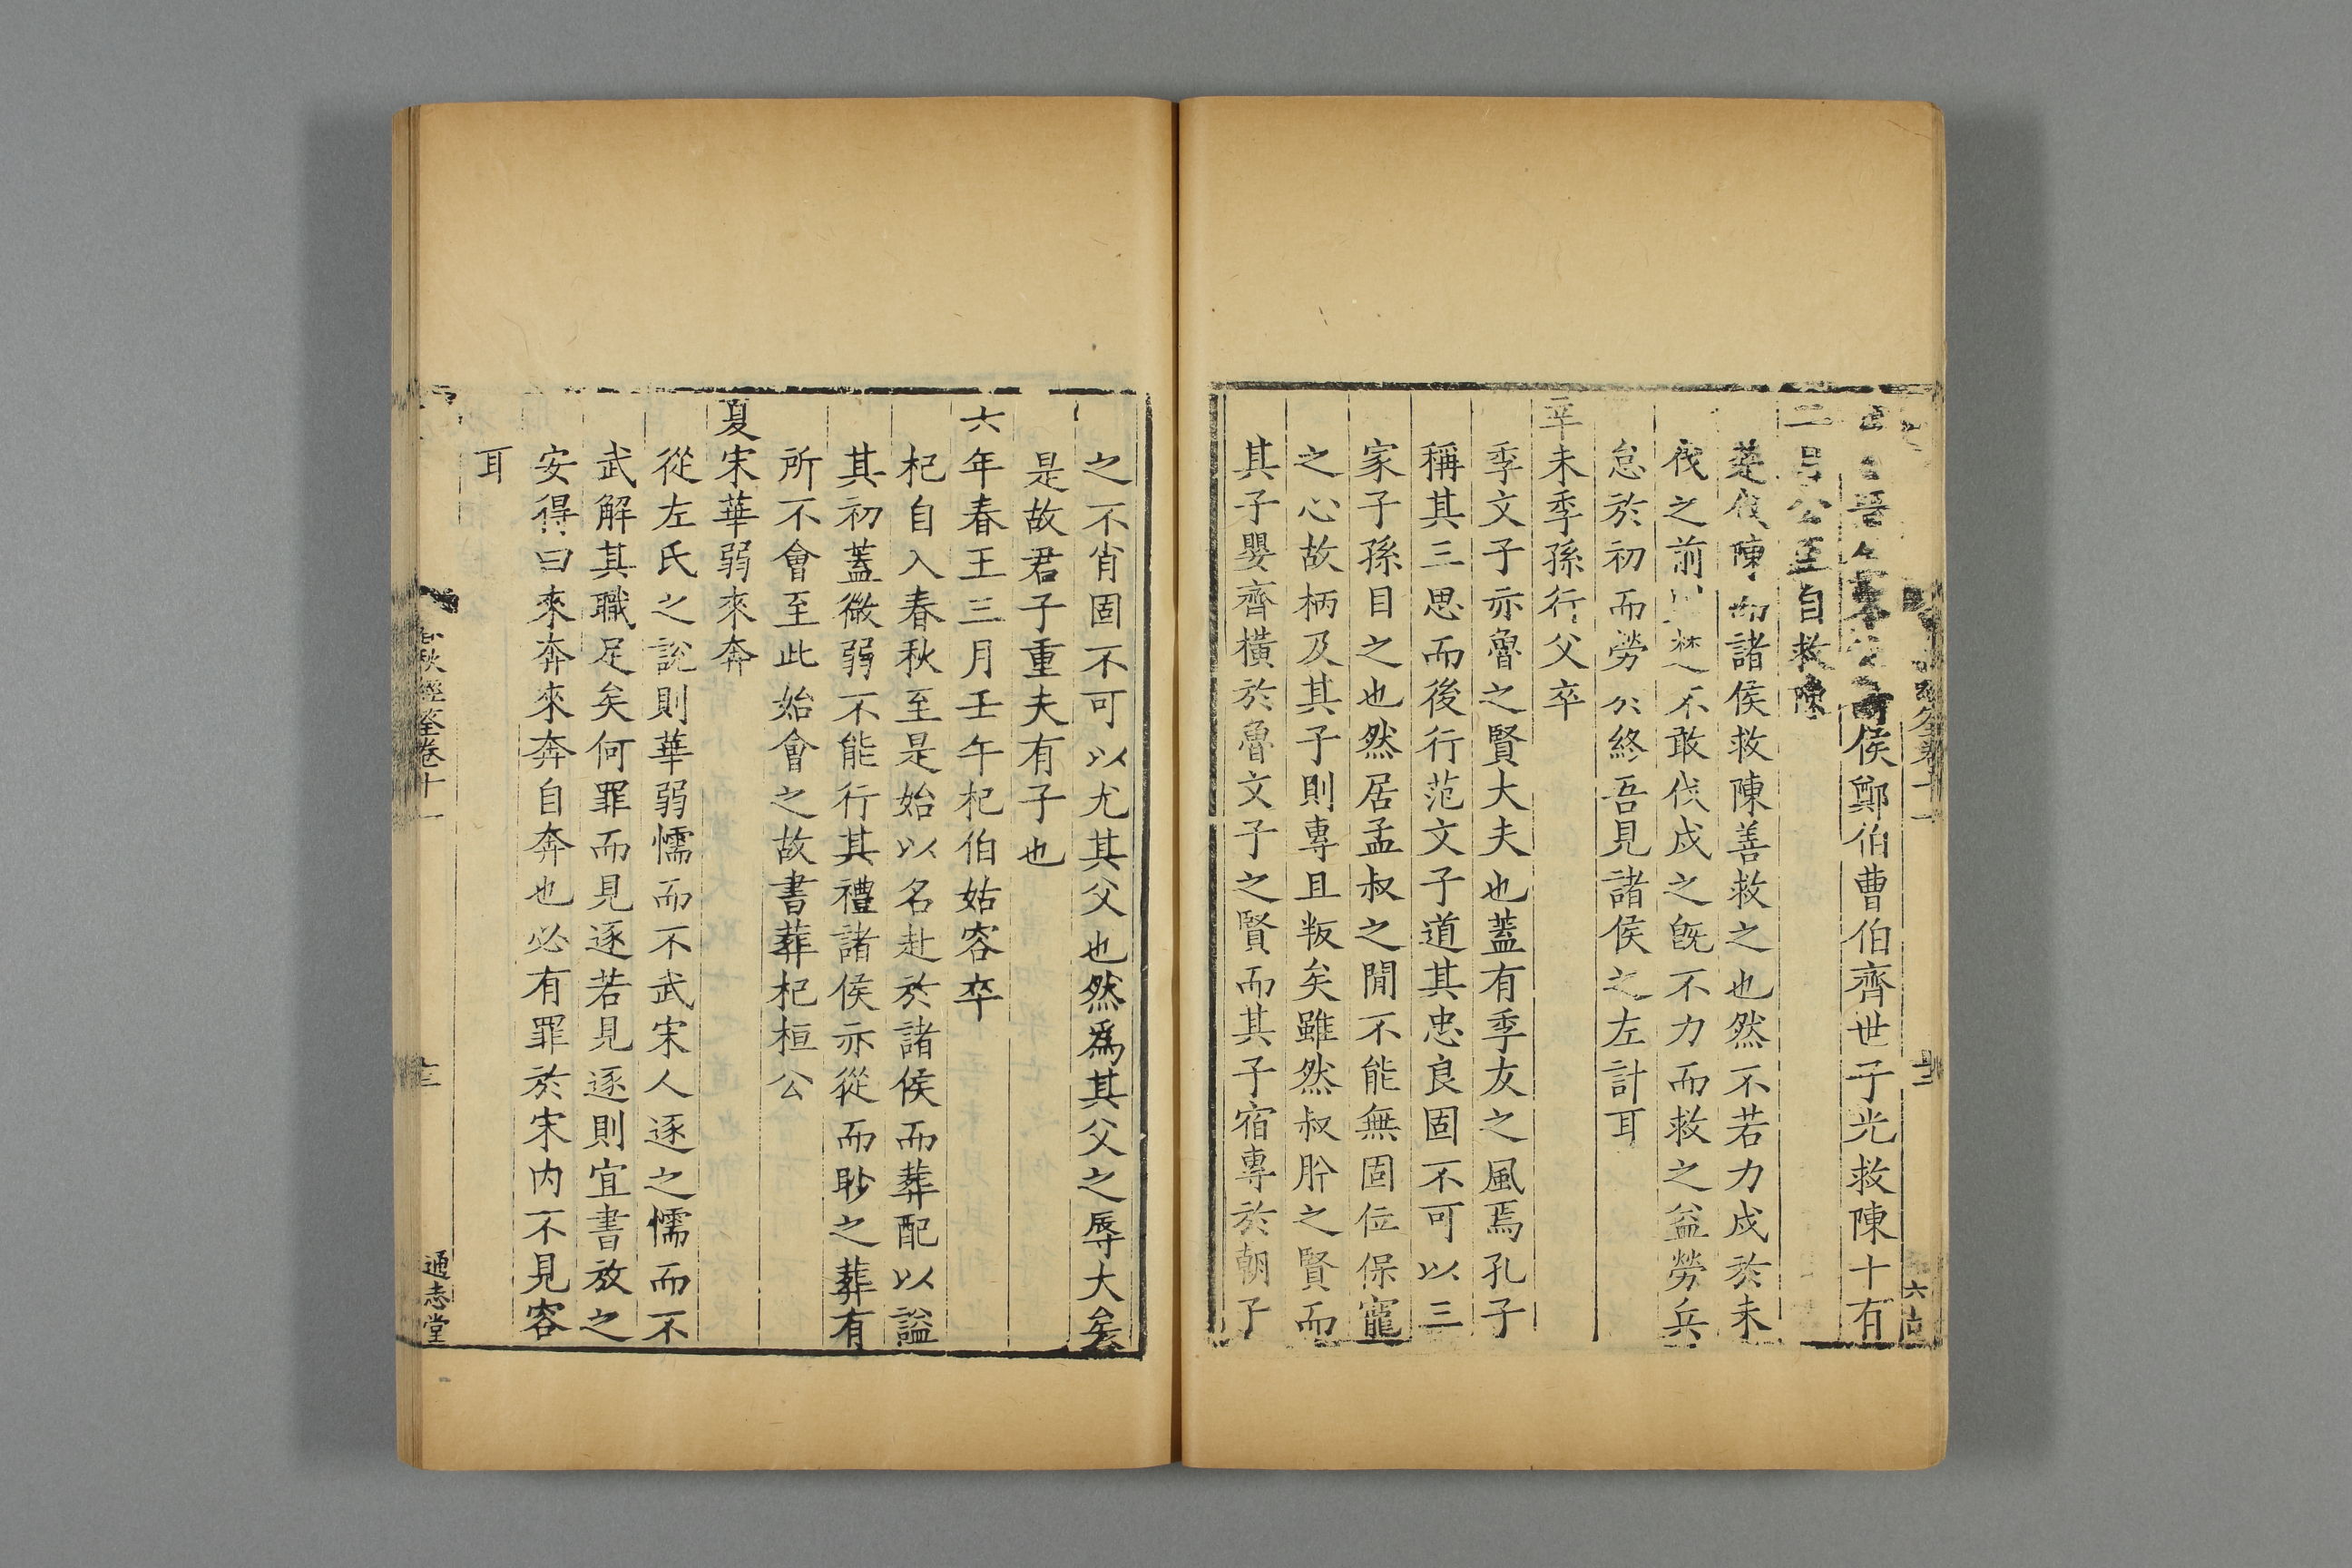 侯鄭伯曹伯齊世子光救陳十有
二月公至自救陳
楚伐陳而諸侯救陳善救之也然不若力戍於未
伐之前楚不敢伐戍之旣不力而救之益勞兵
怠於初而勞於終吾見諸侯之左計耳
辛未季孫行父卒
季文子亦魯之賢大夫也蓋有季友之風焉孔子
稱其三思而後行范文子道其忠良固不可以三
家子孫目之也然居孟叔之閒不能無固位保寵
之心故柄及其子則專且叛矣雖然叔肸之賢而
其子嬰齊橫於魯文子之賢而其子宿專於朝子
之不肖固不可以尤其父也然爲其父之辱大矣
是故君子重夫有子也
六年春王三月壬午杞伯姑容卒
杞自入春秋至是始以名赴於諸侯而葬配以諡
其初蓋微弱不能行其禮諸侯亦從而眇之葬有
所不會至此始會之故書葬杞桓公
夏宋華弱來奔
從左氏之說則華弱懦而不武宋人逐之懦而不
武解其職足矣何罪而見逐若見逐則宜書放之
安得曰來奔來奔自奔也必有罪於宋内不見容
耳
春秋經筌卷十一
通志堂